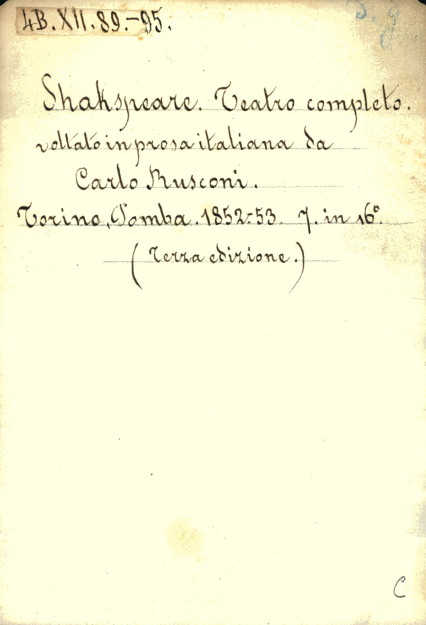 4B. XII. 89.-95.
Shakspeare. Teatro completo.
voltato in prosa italiana da
Carlo Rusconi.
Torino, Pomba. 1852-53. 7. in 16º
(Terza edizione.)
C